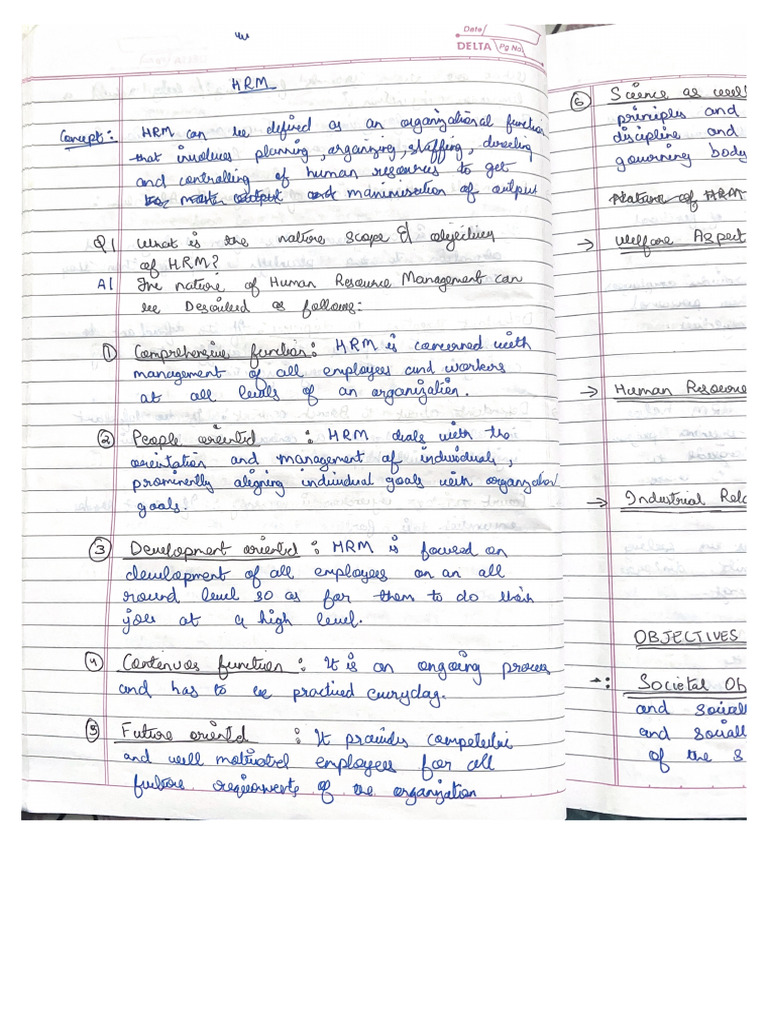 Date/
DELTA Pg No.
HRM
Concept: HRM can be defined as an organizational function
that involves planning, organizing, staffing, directing
and controlling of human resources to get
and maximisation of output
Q1 What is the nature scope & objectives
of HRM?
A1 The nature of Human Resource Management can
be Described as follows:
① Comprehensive function: HRM is concerned with
management of all employees and workers
at all levels of an organization.
② People oriented : HRM deals with the
orientation and management of individuals,
prominently aligning individual goals with organization
goals.
③ Development oriented : HRM is focused on
development of all employees on an all
round level so as for them to do their
jobs at a high level.
④ Contenuos function : It is an ongoing process
and has to be practised everyday.
⑤ Future oriented : It provides
and well motivated employees for all
future requirements of the organization
⑥ Science as well
principles and
discipline and
governing body
Nature of HRM
→ Welfare Aspect
→ Human Resource
→ Industrial Rela
OBJECTIVES
Societal Ob
and sociall
and sociall
of the s